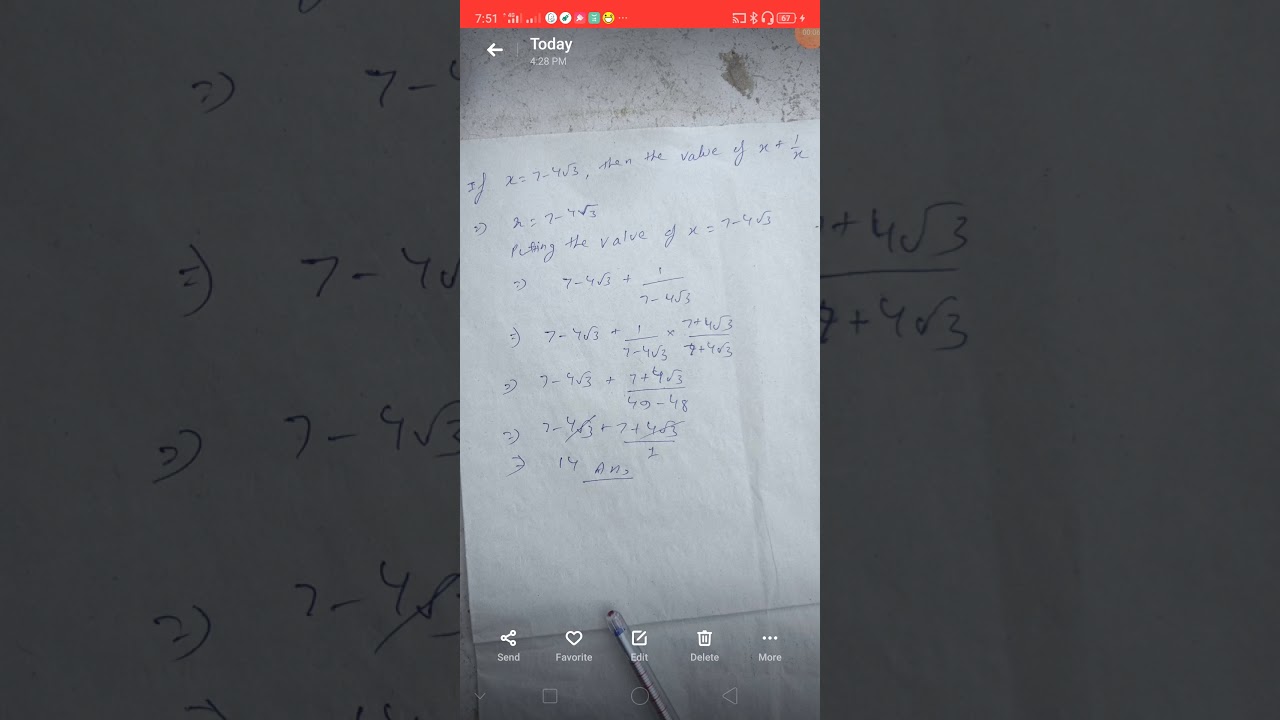 7:51
67
00:06
Today
4:28 PM
If x = 7-4√3, then the value of x + 1/x
=) x = 7-4√3
Putting the value of x = 7-4√3
=) 7-4√3 + 1/(7-4√3)
=) 7-4√3 + 1/(7-4√3) × (7+4√3)/(7+4√3)
=) 7-4√3 + (7+4√3)/(49-48)
=) 7-4√3 + (7+4√3)/1
=) 14 Ans
Send Favorite Edit Delete More
=) 7-4
=) 7-4√
=) 7-4√3
=) 7-4√3
+4√3
7+4√3